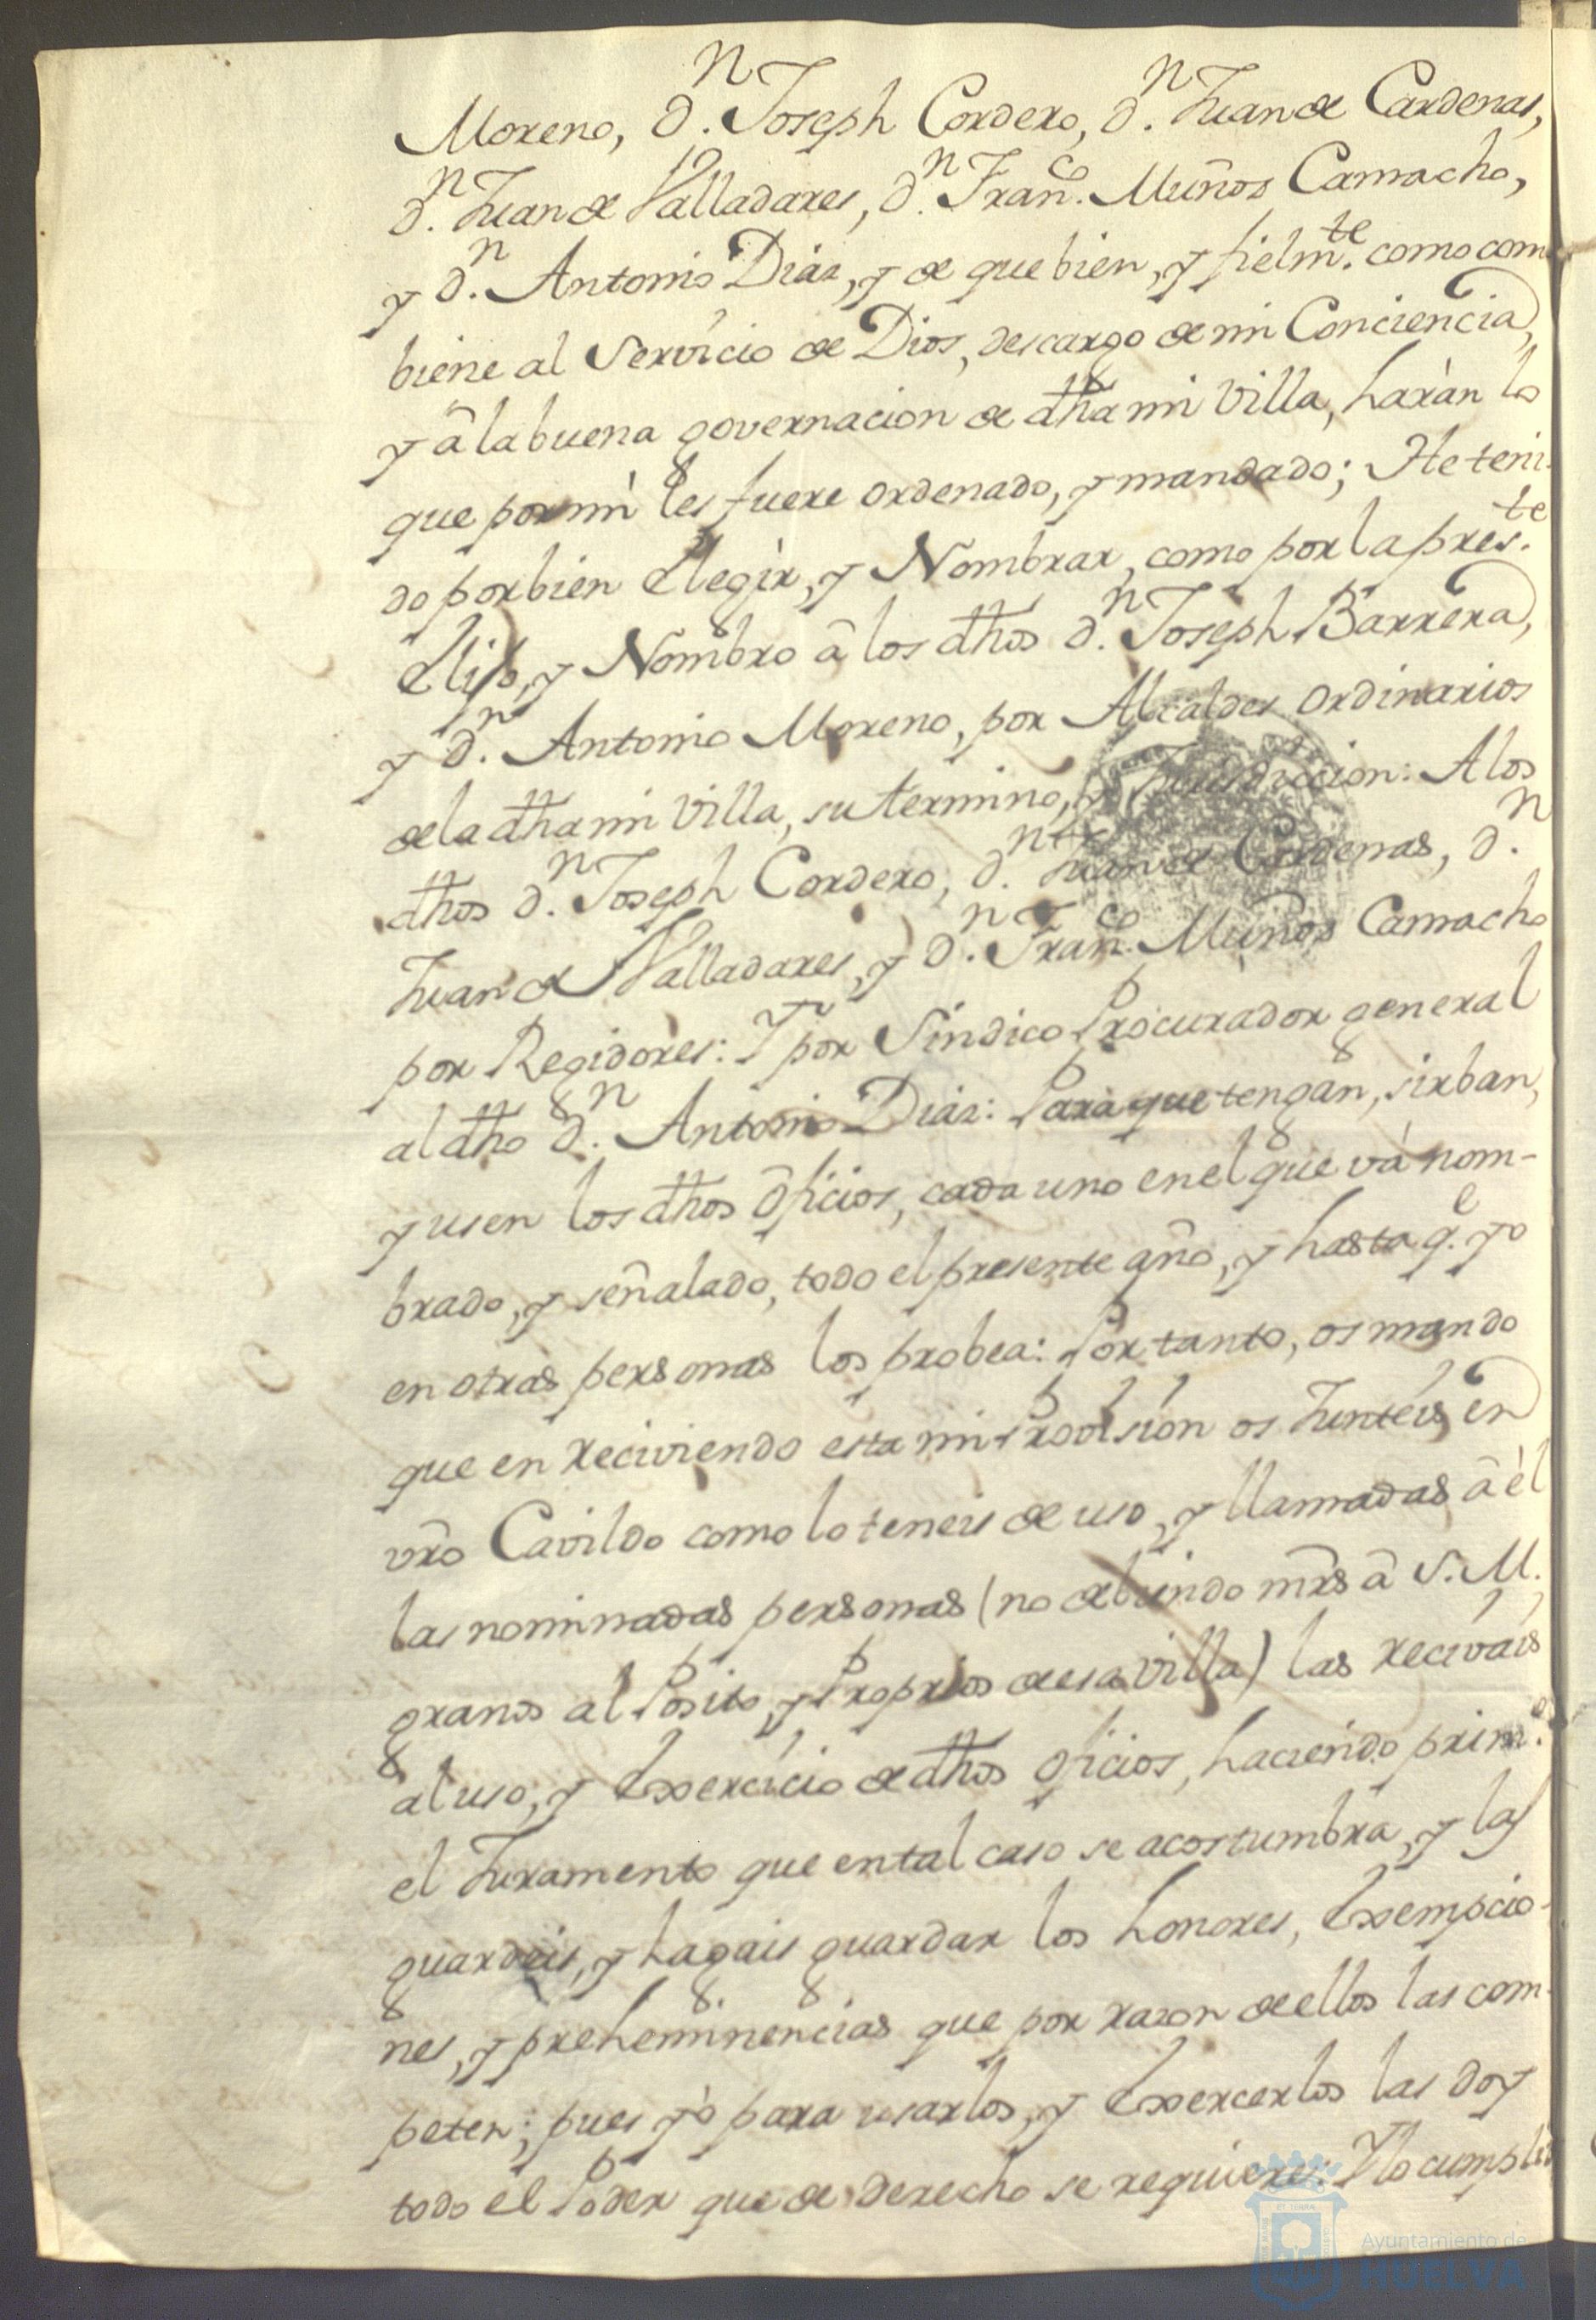 Moreno, Dn. Joseph Cordero, Dn. Juan de Cardenas,
Dn. Juan de Valladares, Dn. Franco. Muños Camacho,
y Dn. Antonio Diaz, y de que bien, y fielmte. como com
biene al Servicio de Dios, descargo de mi Conciencia,
y â la buena governacion de dha mi Villa, haràn lo
que por mì les fuere ordenado, y mandado; He teni-
do por bien Elegir, y Nombrar, como por la preste.
Elijo, y Nombro â los dhos Dn. Joseph Barrera,
y Dn. Antonio Moreno, por Alcaldes ordinarios
de la dha mi Villa, su termino, y Jurisdiccion: A los
dhos Dn. Joseph Cordero, Dn. Juan de Cardenas, Dn.
Juan de Valladares, y Dn. Franco. Muños Camacho
por Regidores: Y por Sindico Procurador general
al dho Dn. Antonio Diaz: Para que tengan, sirban,
y usen los dhos Oficios, cada uno en el que và nom-
brado, y señalado, todo el presente año, y hasta qe. yo
en otras personas los probea: Por tanto, os mando
que en reciviendo esta mi Provision os Junteis en
vro Cavildo como lo teneis de uso, y llamadas â èl
las nominadas personas (no debiendo mrs â S. M.
granos al Posito, y Proprios de esa Villa) las recivais
al uso, y Exercicio de dhos oficios, haciendo primo.
el Juramento que en tal caso se acostumbra, y las
guardeis, y hagais guardar los honores, Exempcio-
nes, y preheminencias que por razon de ellos las com-
peten; pues yò para usarlos, y Exercerlos las doy
todo el Poder que de derecho se requiere: Y lo cumplir
Ayuntamiento de
HUELVA